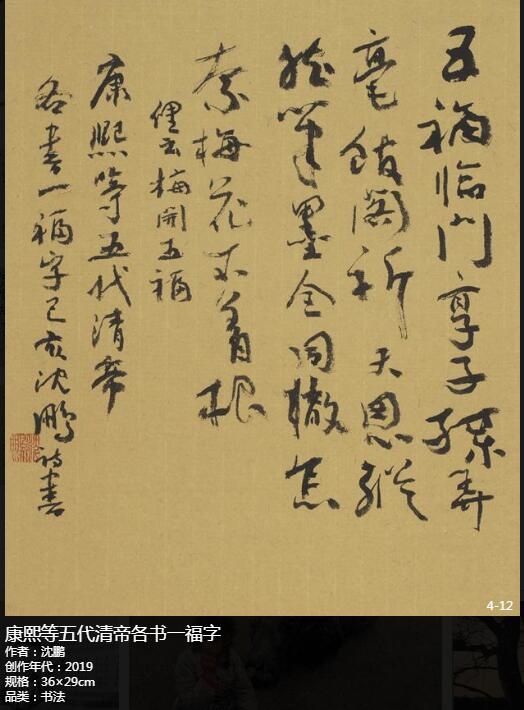 五福临门享子孫弄
毫館閣祈天恩縱
然筆墨全同轍怎
奈梅花未着根
俚云梅開五福
康熙等五代清帝
各書一福字己亥沈鵬詩書
4-12
康熙等五代清帝各书一福字
作者：沈鹏
创作年代：2019
规格：36×29cm
品类：书法